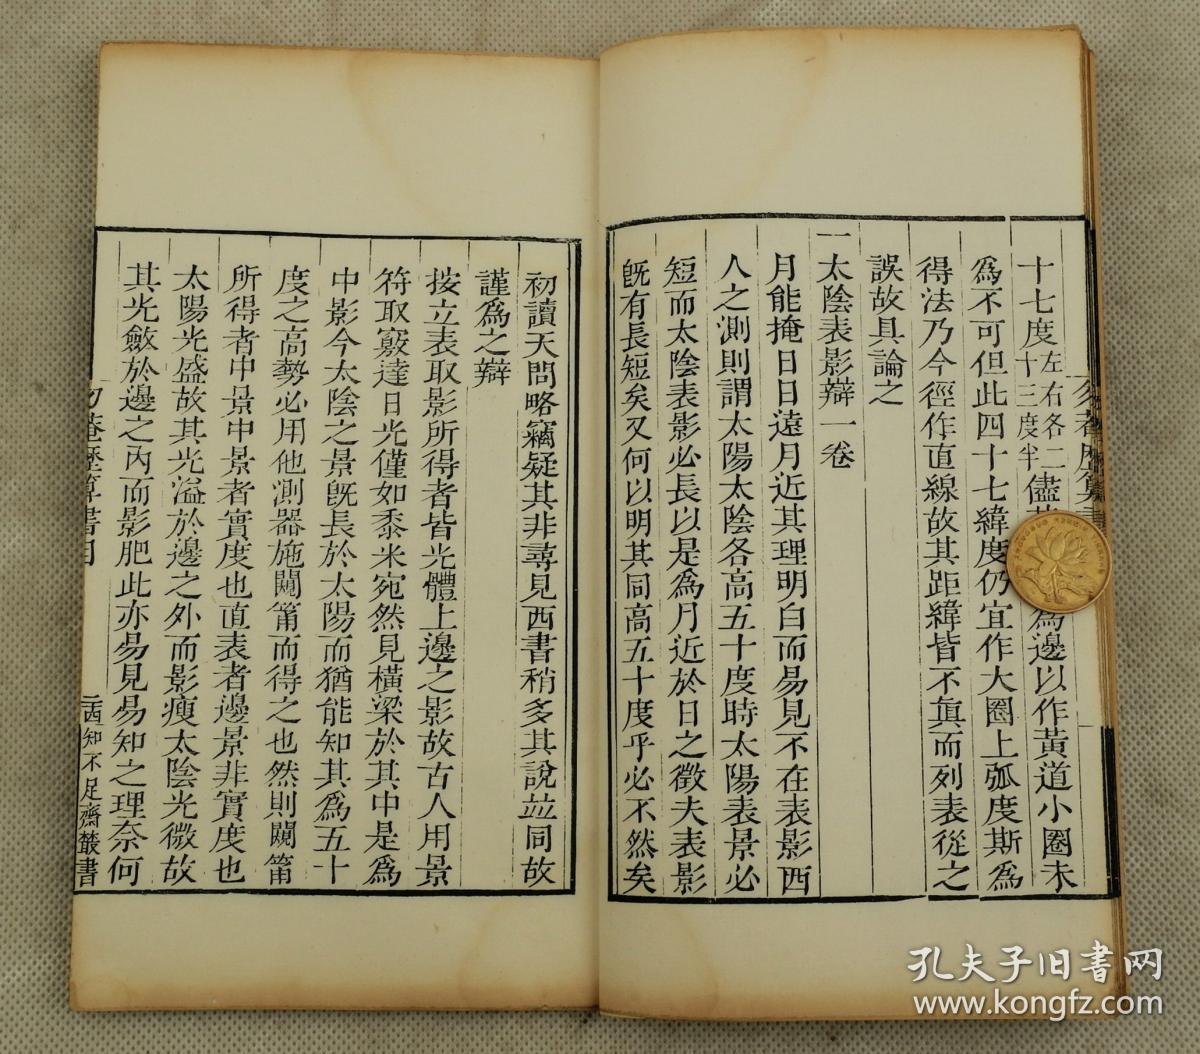 十七度左右各二十三度半儘 爲邊以作黃道小圈未
爲不可但此四十七緯度仍宜作大圈上弧度斯爲
得法乃今徑作直線故其距緯皆不眞而列表從之
誤故具論之
一太陰表影辯一卷
月能掩日日遠月近其理明白而易見不在表影西
人之測則謂太陽太陰各高五十度時太陽表景必
短而太陰表影必長以是爲月近於日之徵夫表影
旣有長短矣又何以明其同高五十度乎必不然矣
初讀天問略竊疑其非尋見西書稍多其說竝同故
謹爲之辯
按立表取影所得者皆光體上邊之影故古人用景
符取竅達日光僅如黍米宛然見橫梁於其中是爲
中影今太陰之景旣長於太陽而猶能知其爲五十
度之高勢必用他測器施闚筩而得之也然則闚筩
所得者中景中景者實度也直表者邊景非實度也
太陽光盛故其光溢於邊之外而影瘦太陰光微故
其光斂於邊之內而影肥此亦易見易知之理奈何
勿菴歷算書目
二西知不足齋叢書
孔夫子旧书网
www.kongfz.com